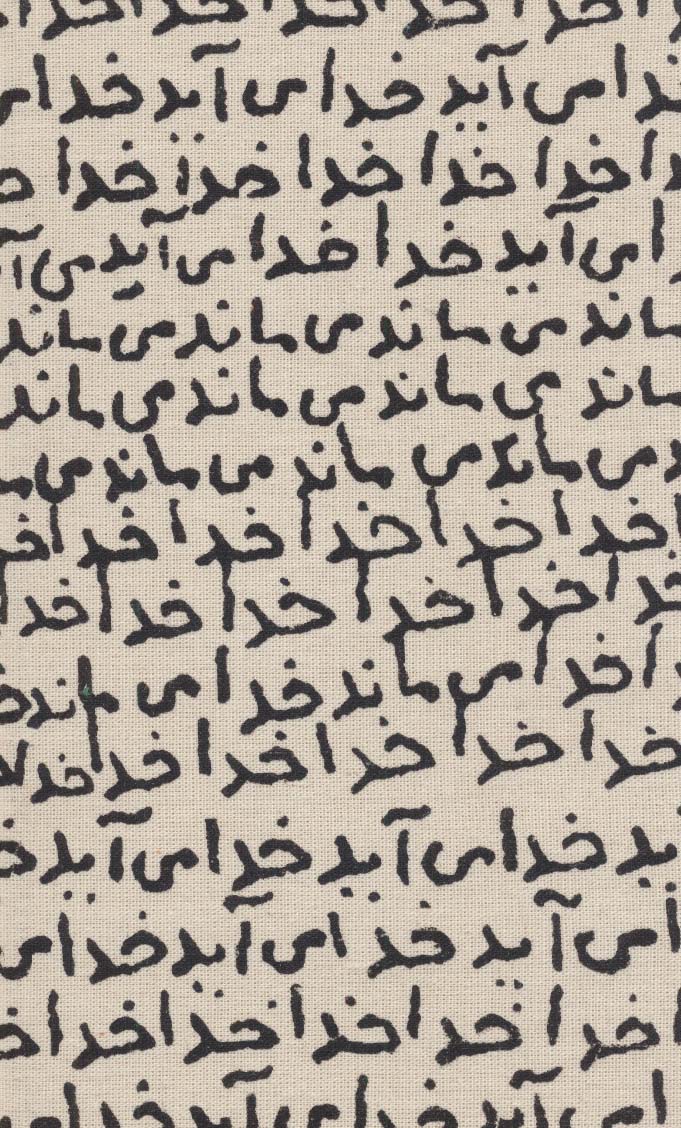 خدا خدا خدا خدا خدا
خدا می آید خدا می آید خدا می
خدا خدا خدا خدا خدا
ا می آید خدا خدا می آید می
ماند می ماند می ماند می ماند
ماند می ماند می ماند می ماند
می ماند می ماند می ماند می ما
خدا خدا خدا خدا خدا خد
خدا خدا خدا خدا خدا خدا
ا خدا می ماند خدا می ماند
خدا خدا خدا خدا خدا خدا
ید خدا می آید خدا می آید
ا می آید خدا می آید خدا می
خدا خدا خدا خدا خدا
ا می آید خدا می آید خدا می